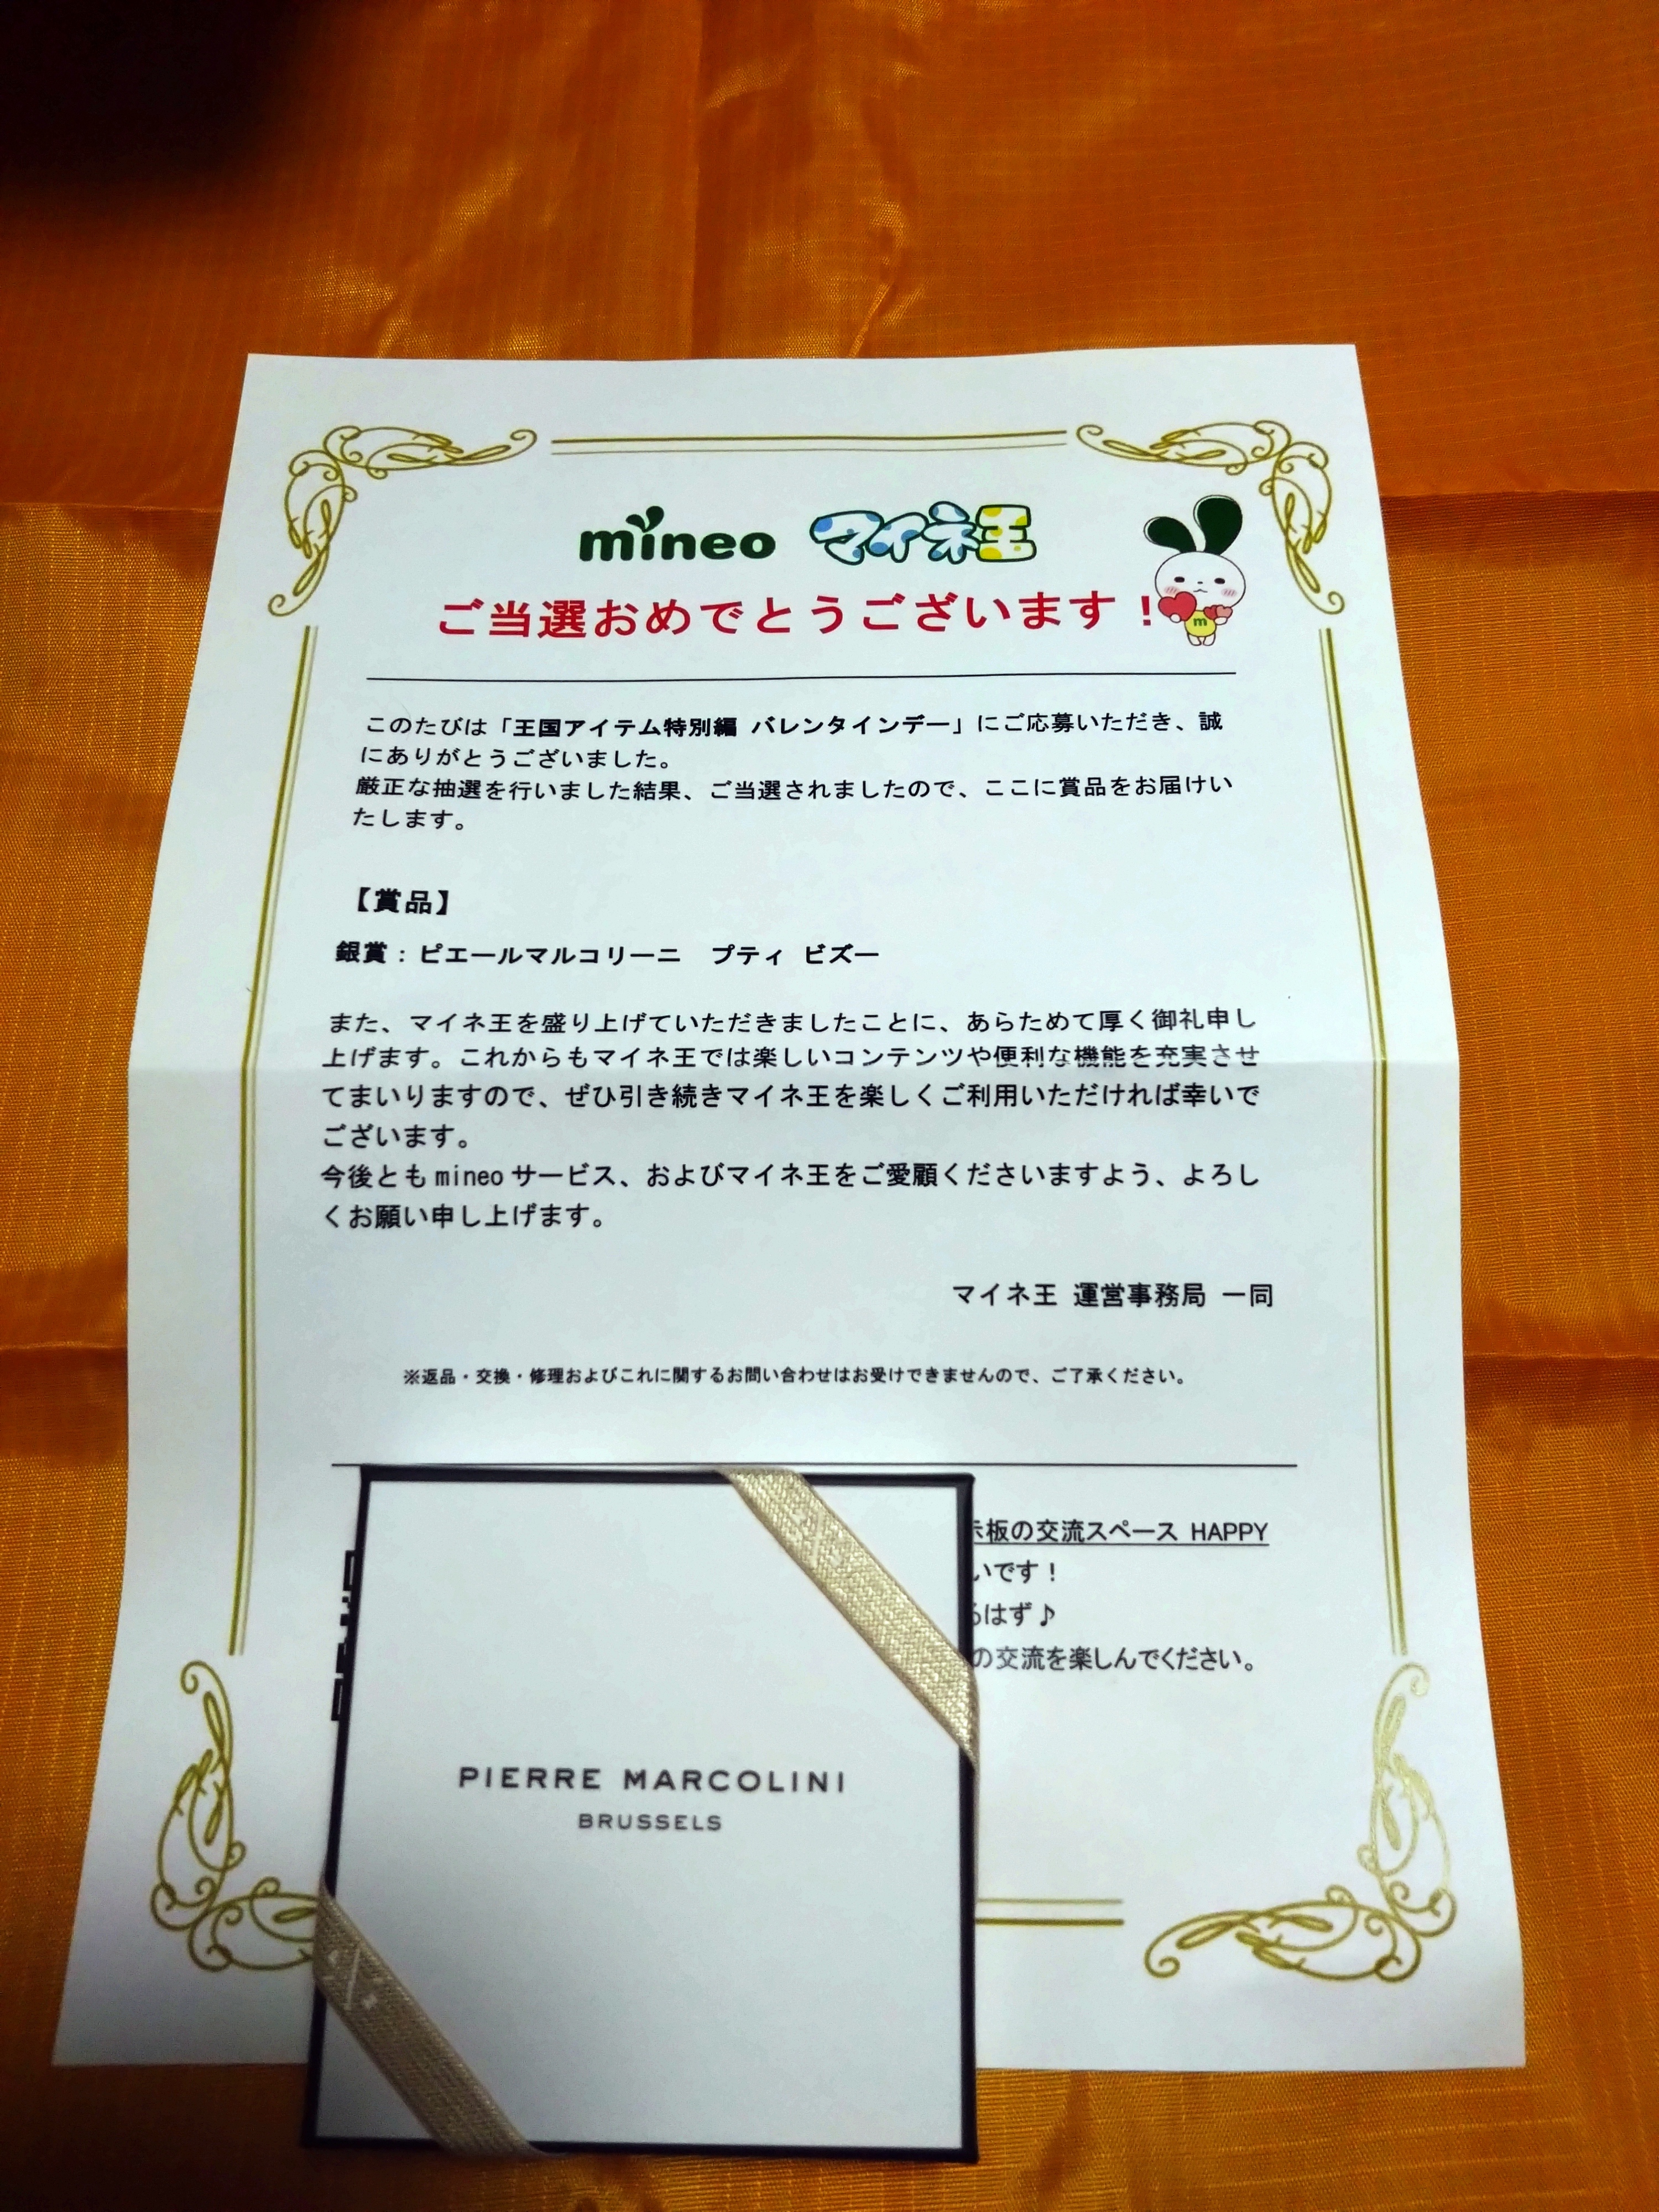 mineo マイネ王
ご当選おめでとうございます！
m
このたびは「王国アイテム特別編 バレンタインデー」にご応募いただき、誠
にありがとうございました。
厳正な抽選を行いました結果、ご当選されましたので、ここに賞品をお届けい
たします。
【賞品】
銀賞：ピエールマルコリーニ　プティ ビズー
また、マイネ王を盛り上げていただきましたことに、あらためて厚く御礼申し
上げます。これからもマイネ王では楽しいコンテンツや便利な機能を充実させ
てまいりますので、ぜひ引き続きマイネ王を楽しくご利用いただければ幸いで
ございます。
今後とも mineo サービス、およびマイネ王をご愛顧くださいますよう、よろし
くお願い申し上げます。
マイネ王 運営事務局 一同
※返品・交換・修理およびこれに関するお問い合わせはお受けできませんので、ご了承ください。
板の交流スペース HAPPY
いです！
はず♪
の交流を楽しんでください。
PIERRE MARCOLINI
BRUSSELS